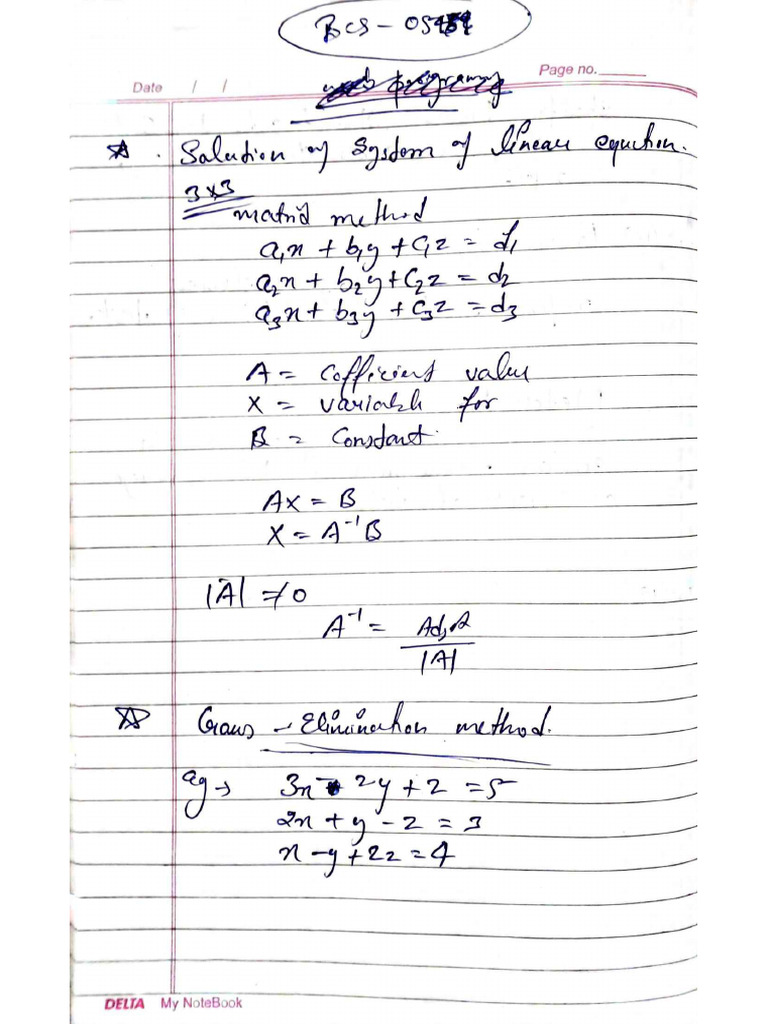 BCS - 054
Date / /
Page no.
★ . Solution of System of linear equction.
3x3
matrid method
a₁x + b₁y + c₁z = d₁
a₂x + b₂y + c₂z = d₂
a₃x + b₃y + c₃z = d₃
A = Cofficient value
X = variable for
B = Constant.
AX = B
X = A⁻¹B
|A| ≠ 0
A⁻¹ = Adj A / |A|
★ Gaus - Elimination method.
eg → 3x - 2y + z = 5
2x + y - z = 3
x - y + 2z = 4
DELTA My NoteBook